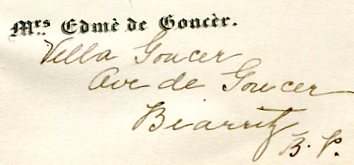 Mrs. Edmè de Goncèr.
Villa Goncer
Ave de Goncer
Biarritz
B. P.